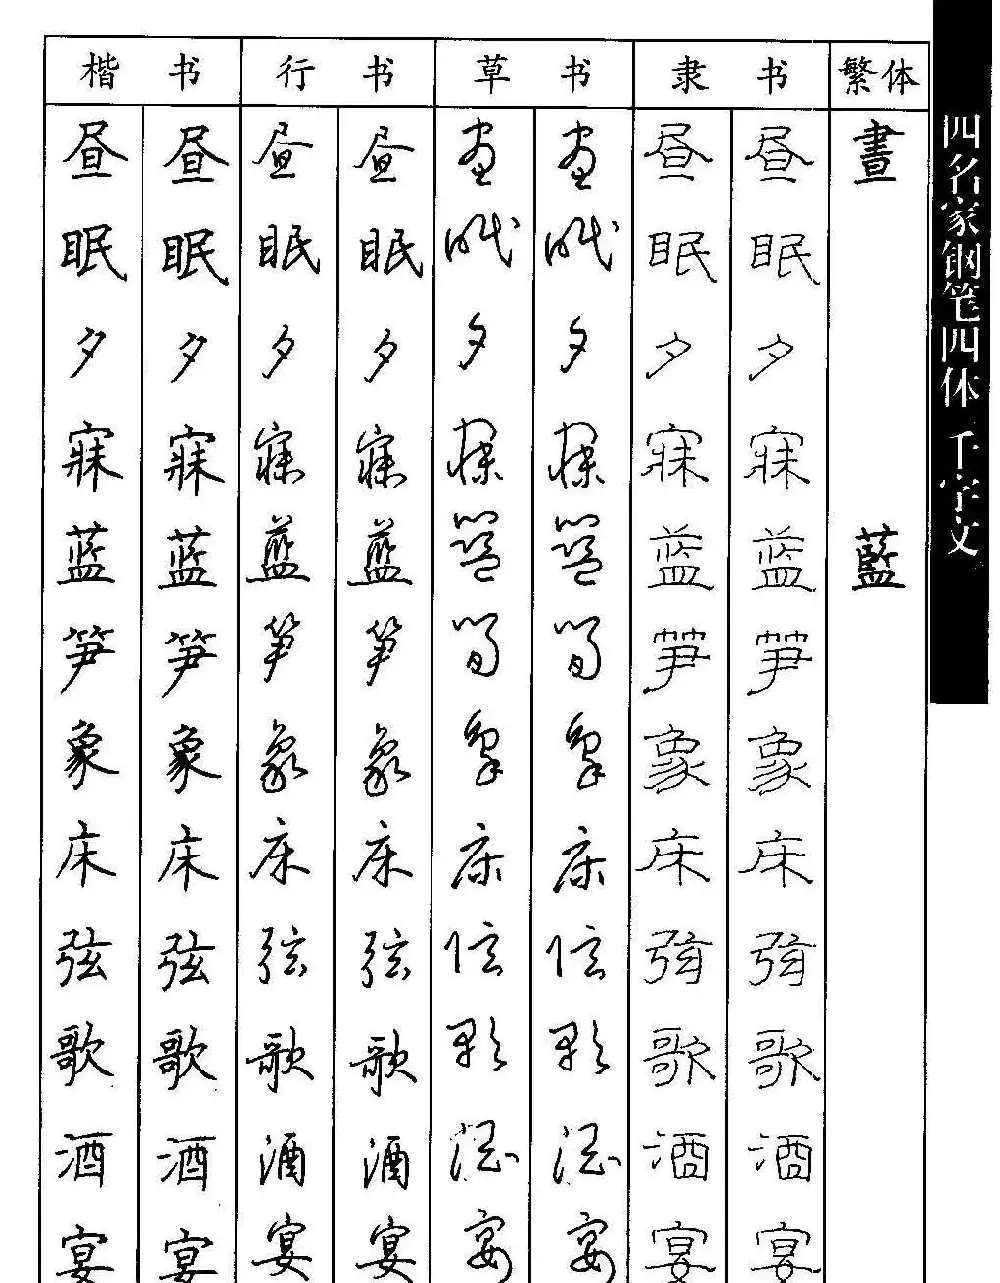 楷书 行书 草书 隶书 繁体
昼 昼 昼 昼 昼 昼 昼 昼 晝
眠 眠 眠 眠 眠 眠 眠 眠
夕 夕 夕 夕 夕 夕 夕 夕
寐 寐 寐 寐 寐 寐 寐 寐
蓝 蓝 蓝 蓝 蓝 蓝 蓝 蓝 藍
笋 笋 笋 笋 笋 笋 笋 笋
象 象 象 象 象 象 象 象
床 床 床 床 床 床 床 床
弦 弦 弦 弦 弦 弦 弦 弦
歌 歌 歌 歌 歌 歌 歌 歌
酒 酒 酒 酒 酒 酒 酒 酒
宴 宴 宴 宴 宴 宴 宴 宴
四名家钢笔四体 千字文